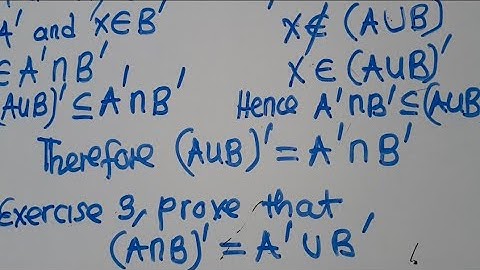 A' and x∈B'
∈ A'∩B'
(A∪B)' ⊆ A'∩B'
x∉ (A∪B)
x∈ (A∪B)'
Hence A'∩B' ⊆ (A∪B
Therefore (A∪B)' = A'∩B'
Exercise 3, prove that
(A∩B)' = A'∪B'